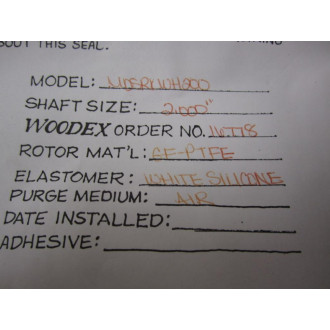 BOUT THIS SEAL.
MODEL:
SHAFT SIZE: 2.000"
WOODEX ORDER NO. 116778
ROTOR MAT'L: GF-PTFE
ELASTOMER: WHITE SILICONE
PURGE MEDIUM: AIR
DATE INSTALLED:
ADHESIVE: